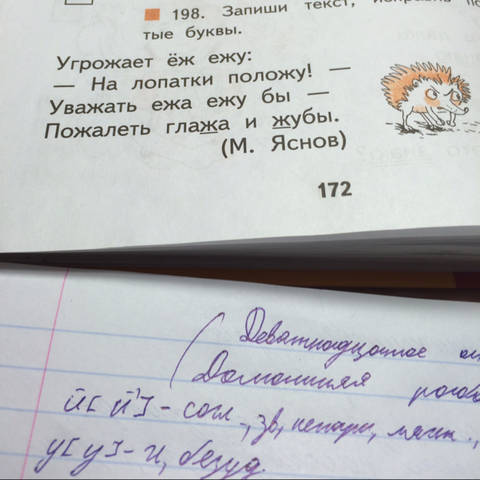 198. Запиши текст, исправь
тые буквы.
Угрожает ёж ежу:
— На лопатки положу! —
Уважать ежа ежу бы —
Пожалеть глажа и жубы.
(М. Яснов)
172
Девятнадцатое
Домашняя
й [й'] - согл., зв, непарн, мягк.,
у [у] - г, безуд.